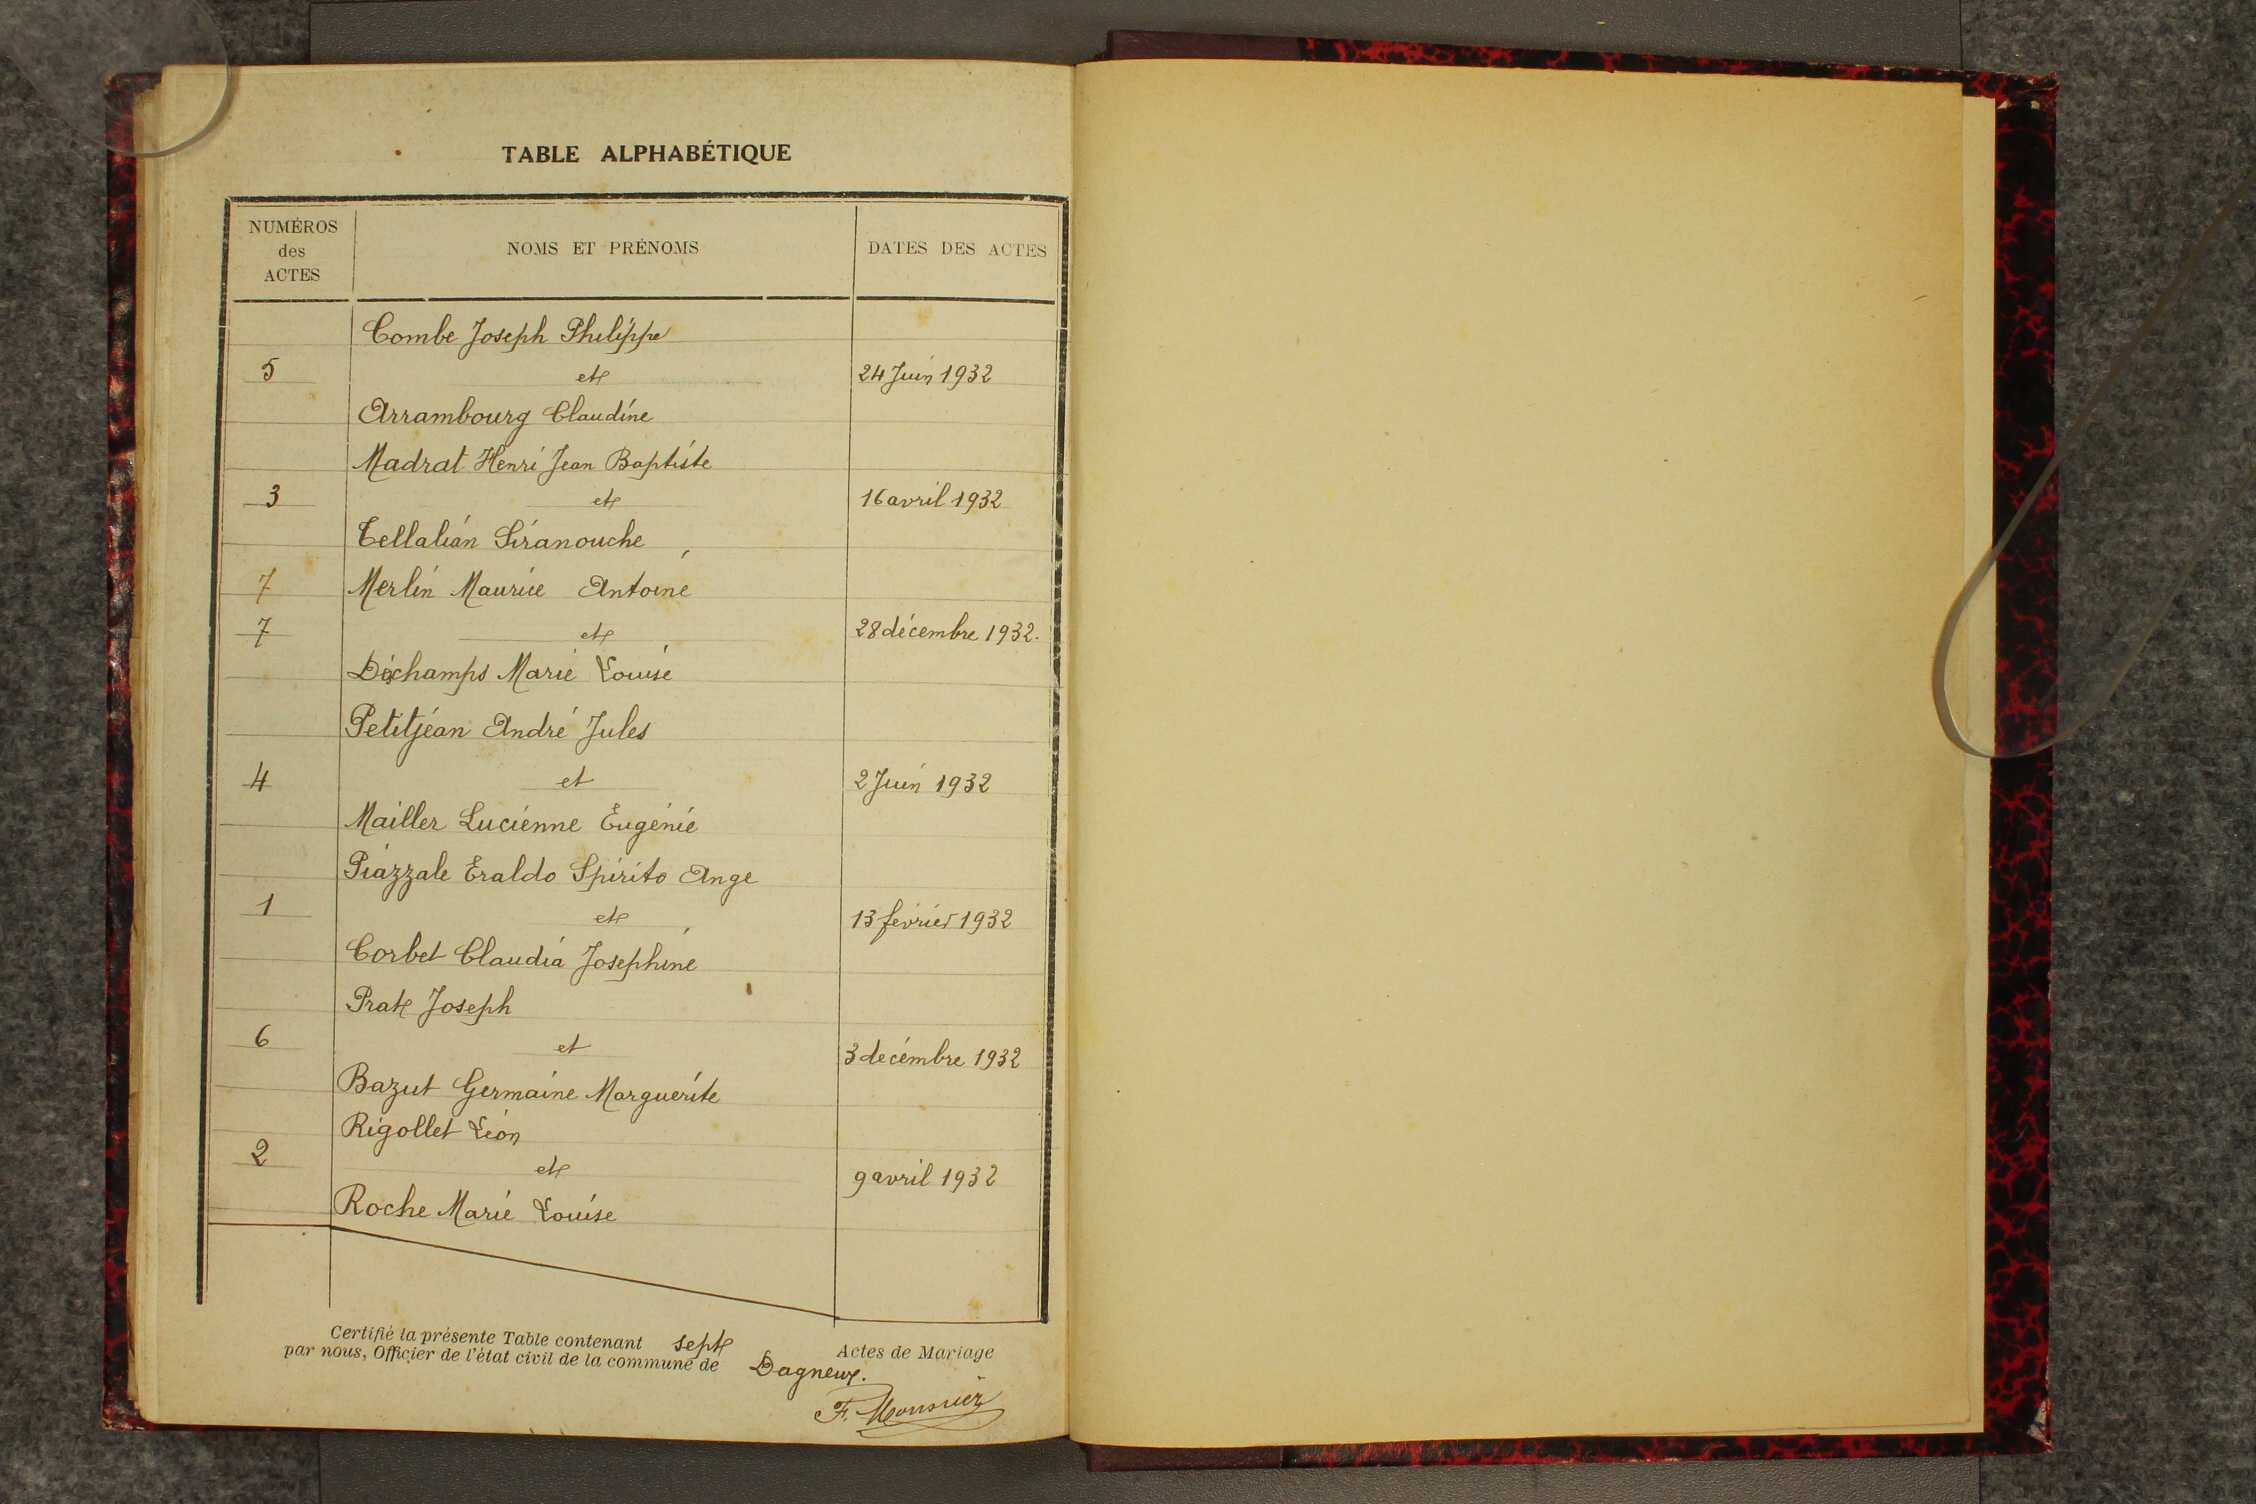 TABLE ALPHABÉTIQUE
NUMÉROS des ACTES
NOMS ET PRÉNOMS
DATES DES ACTES
Combe Joseph Philippe
5 et 24 Juin 1932
Arrambourg Claudine
Madrat Henri Jean Baptiste
3 et 16 avril 1932
Tellalian Siranouche
7 Merlin Maurice Antoine
7 et 28 décembre 1932.
Déchamps Marie Louise
Petitjean André Jules
4 et 2 Juin 1932
Mailler Lucienne Eugénie
Piazzale Eraldo Spirito Ange
1 et 13 février 1932
Corbet Claudia Josephine
Prat Joseph
6 et 3 decémbre 1932
Bazut Germaine Marguerite
Rigollet Léon
2 et 9 avril 1932
Roche Marie Louise
Certifié la présente Table contenant sept Actes de Mariage
par nous, Officier de l'état civil de la commune de Dagneux.